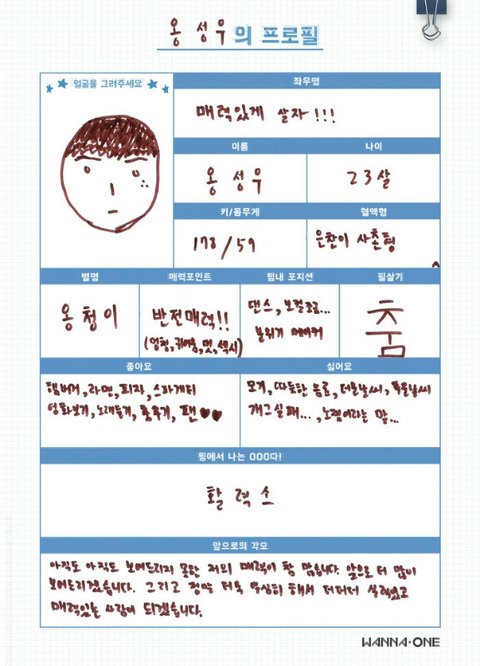 옹성우의 프로필
얼굴을 그려주세요
좌우명
매력있게 살자!!!
이름
나이
옹성우
23살
키/몸무게
혈액형
178/59
은찬이 사촌형
별명
매력포인트
팀내 포지션
필살기
옹청이
반전매력!!
(멍청,귀여움,멋,섹시)
댄스,보컬조금...
분위기 메이커
춤
좋아요
싫어요
햄버거,라면,피자,스파게티
영화보기,노래듣기,춤추기,팬♥♥
모기,따뜻한 음료,더운날씨,추운날씨
개그실패...,노잼이라는 말...
팀에서 나는 OOO다!
활력소
앞으로의 각오
아직도 아직도 보여드리지 못한 저의 매력이 참 많습니다. 앞으로 더 많이
보여드리겠습니다. 그리고 정말 더욱 열심히 해서 더더더 실력있고
매력있는 사람이 되겠습니다.
WANNA·ONE